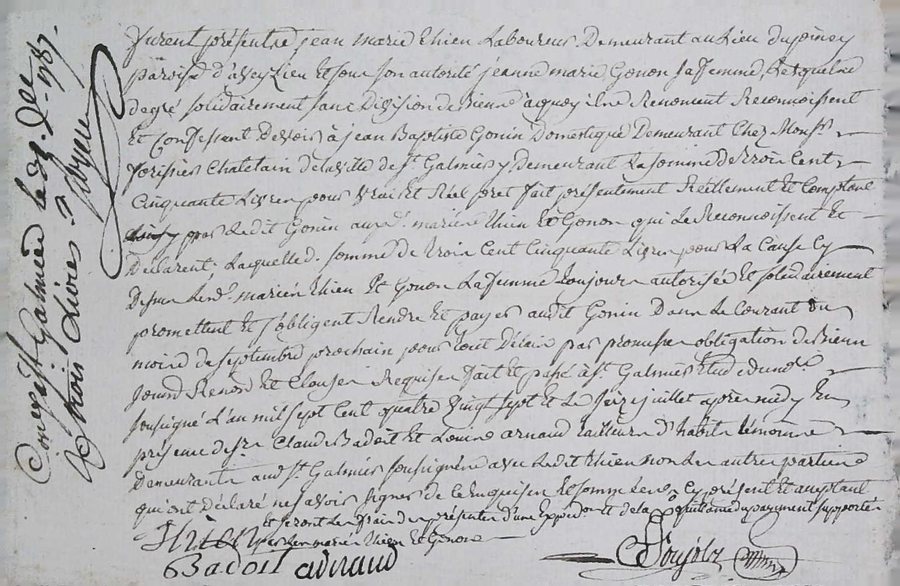 furent présents jean marie thien Laboureur Demeurant au Lieu du poincy
paroisse d'aveyzieu Et sous son autorité jeanne marie Gonon sa femme, Lesquels
de gré solidairement sans Division de Biens à quoy ils Renoncent Reconnoissent
Et Confessent Devoir à jean Baptiste Gonin Domestique Demeurant Chez Mons.r
forissier Chatelain de la ville de S.t Galmier y Demeurant La somme de trois Cent
Cinquante Livres pour vrai Et Réel pret fait présentement Réellement Et Comptant
par Ledit Gonin auxd. mariés thien Et Gonon qui Le Reconnoissent Et
Déclarent. Laquelle d. somme de trois Cent Cinquante Livres pour La Cause Cy
Dessus Lesd. mariés thien Et Gonon La femme toujours autorisée Et solidairement
promettent Et s'obligent Rendre Et payer audit Gonin Dans Le Courant du
mois de septembre prochain pour tout Délais par promesse obligation de Biens
Renon Et Clauses Requises fait Et passé à S.t Galmier Etude du no.re
soussigné L'an mil sept Cent quatre vingt sept Et Le seize juillet après midy En
présence de s.r Claude Badoit Et Louis arnaud tailleurs d'habits témoins
Demeurants aud. S.t Galmier soussignés avec Ledit thien non Les autres parties
qui ont déclaré ne savoir signer de Ce Enquises Et sommées Cy présent Et acceptant
Et seront Les frais des présentes d'une Expéd.on Et de la quittance du payement supportés
par Les mariés thien Et Gonon
thien
Badoit arnaud
Soujols
Con.lé à S.t Galmier le 29 1787.
R trois Livres